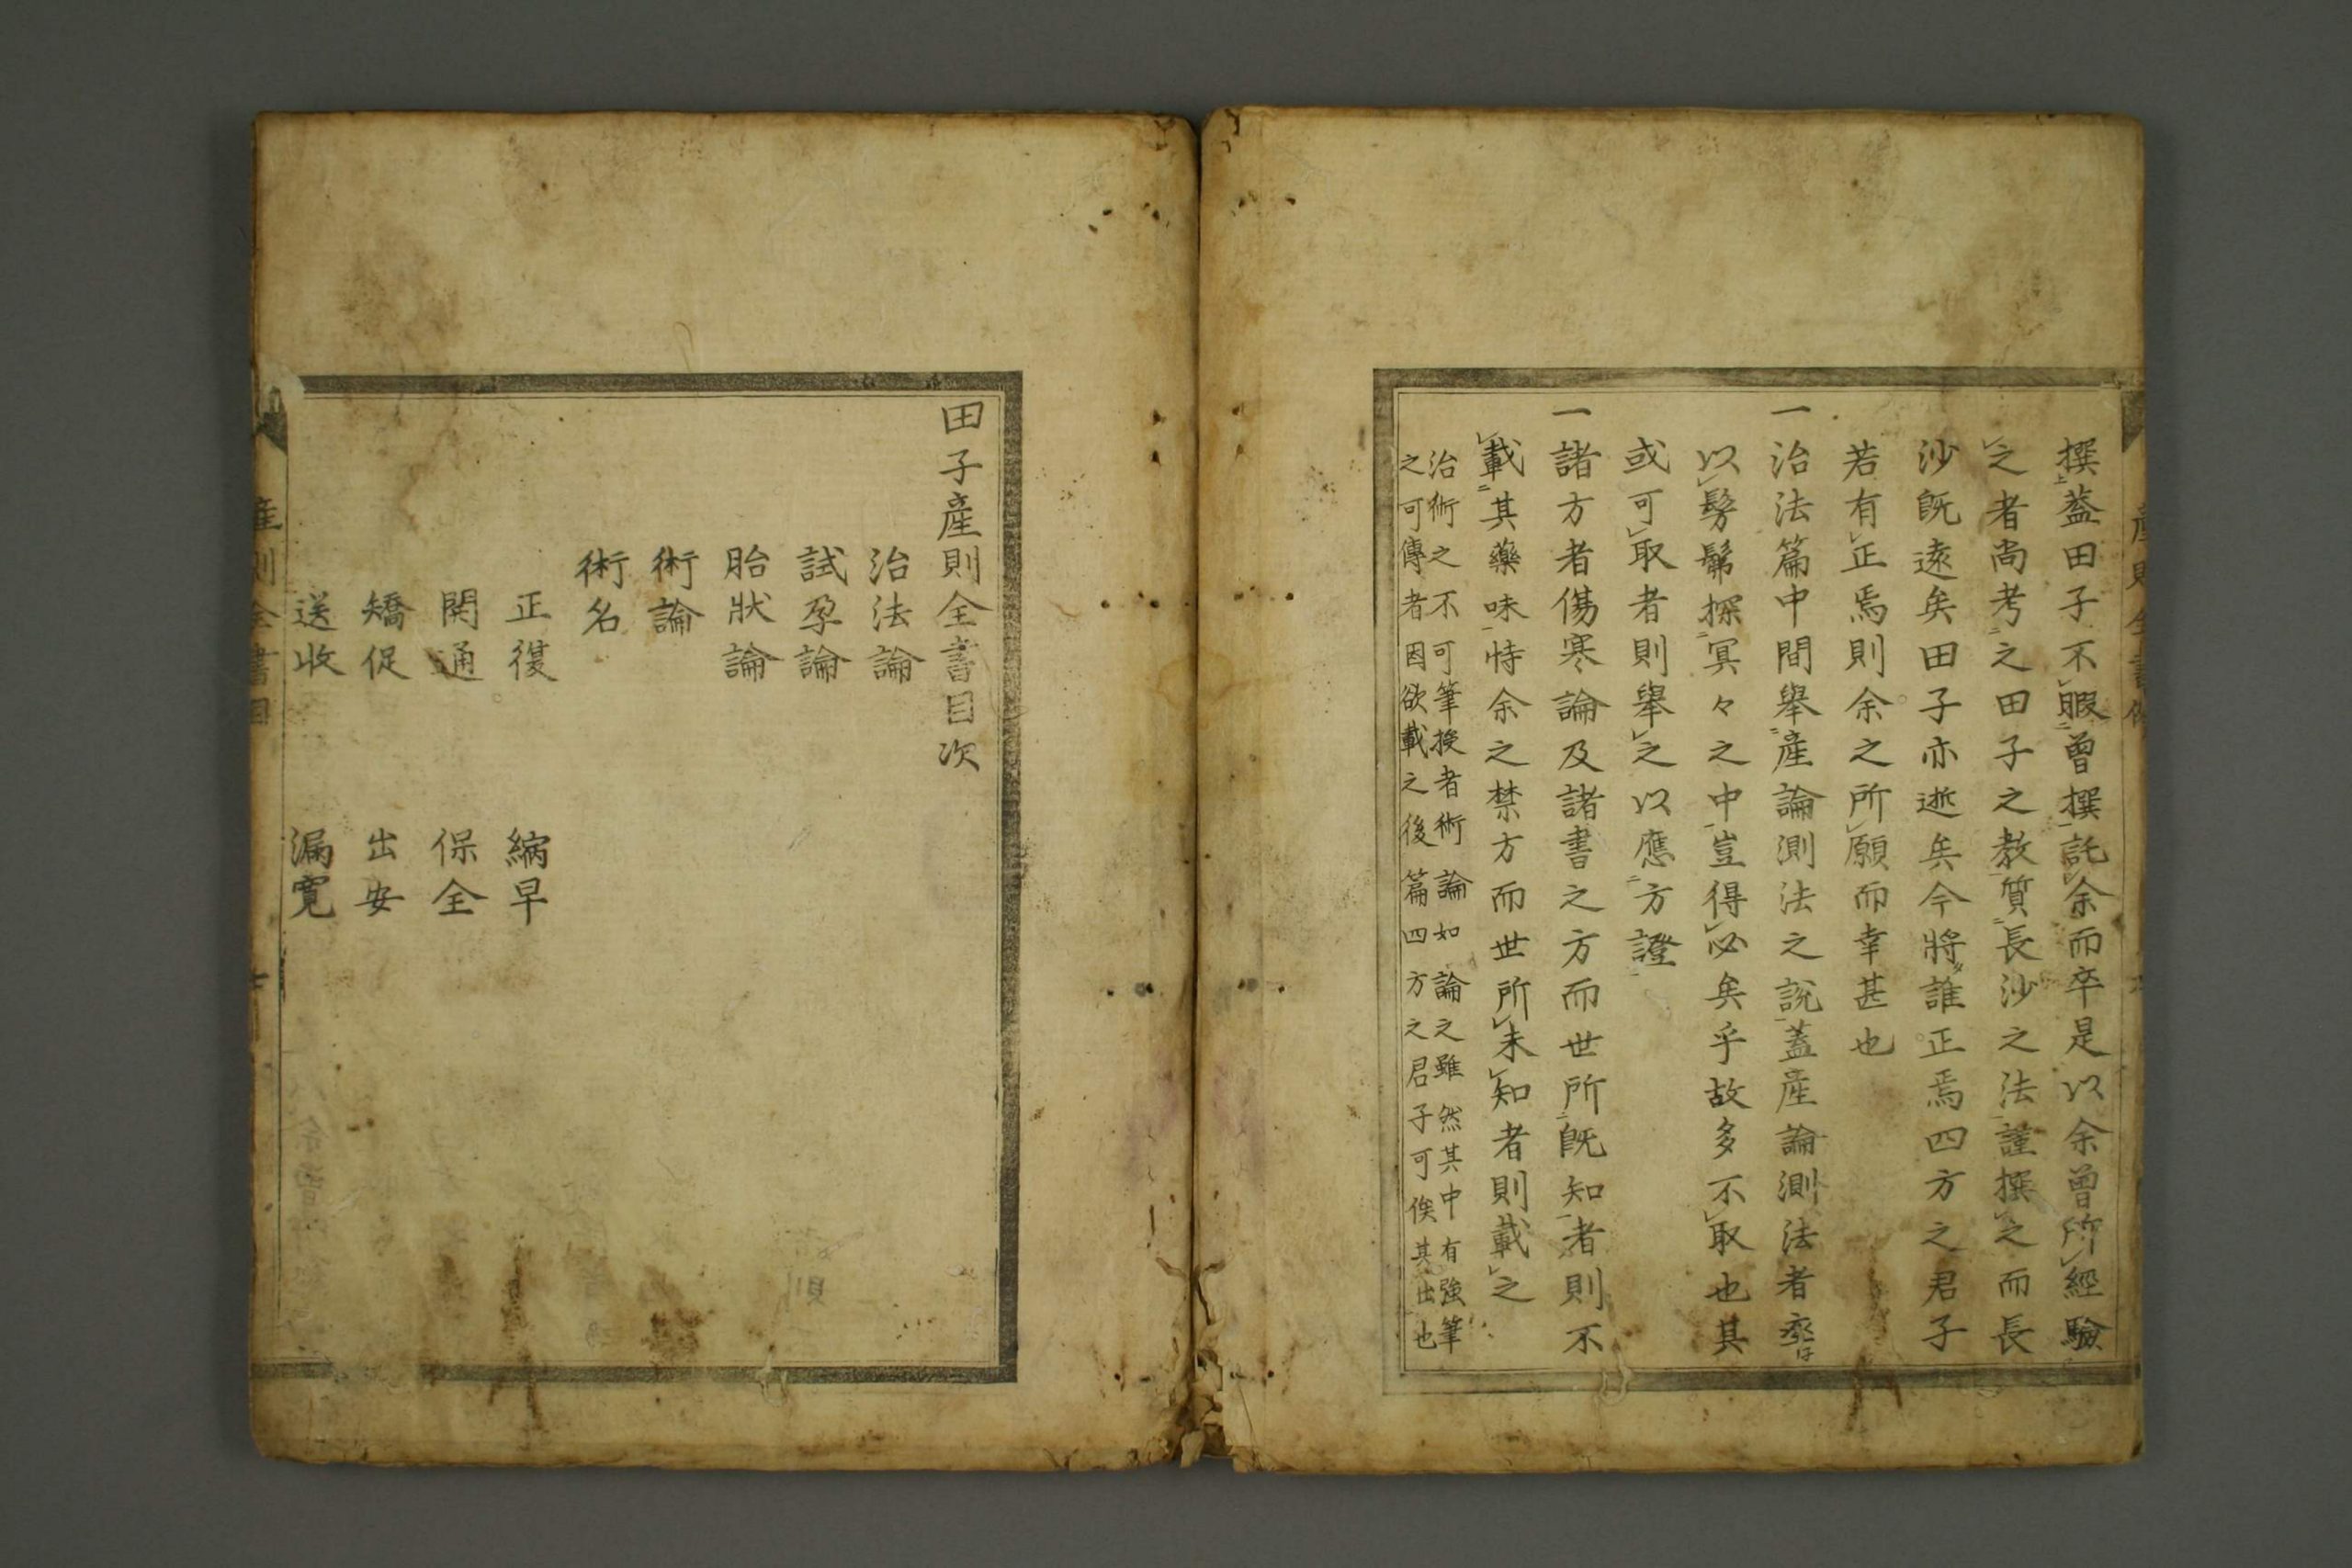 撰蓋田子不暇曾撰託余而卒是以余曽所經驗
之者尚考之田子之教質長沙之法謹撰之而長
沙既遠矣田子亦逝矣今將誰正焉四方之君子
若有正焉則余之所願而幸甚也
一治法篇中間舉産論測法之說蓋産論測法者率
以髣髴探冥々之中豈得必矣乎故多不取也其
或可取者則舉之以應方證
一諸方者傷寒論及諸書之方而世所既知者則不
載其藥味恃余之禁方而世所未知者則載之
治術之不可筆授者術論如論之雖然其中有強筆
之可傳者因欲載之後篇四方之君子可俟其出也
田子産則全書目次
治法論
試孕論
胎狀論
術論
術名
正復　縮早
開通　保全
矯促　出安
送收　漏寛
産則全書目